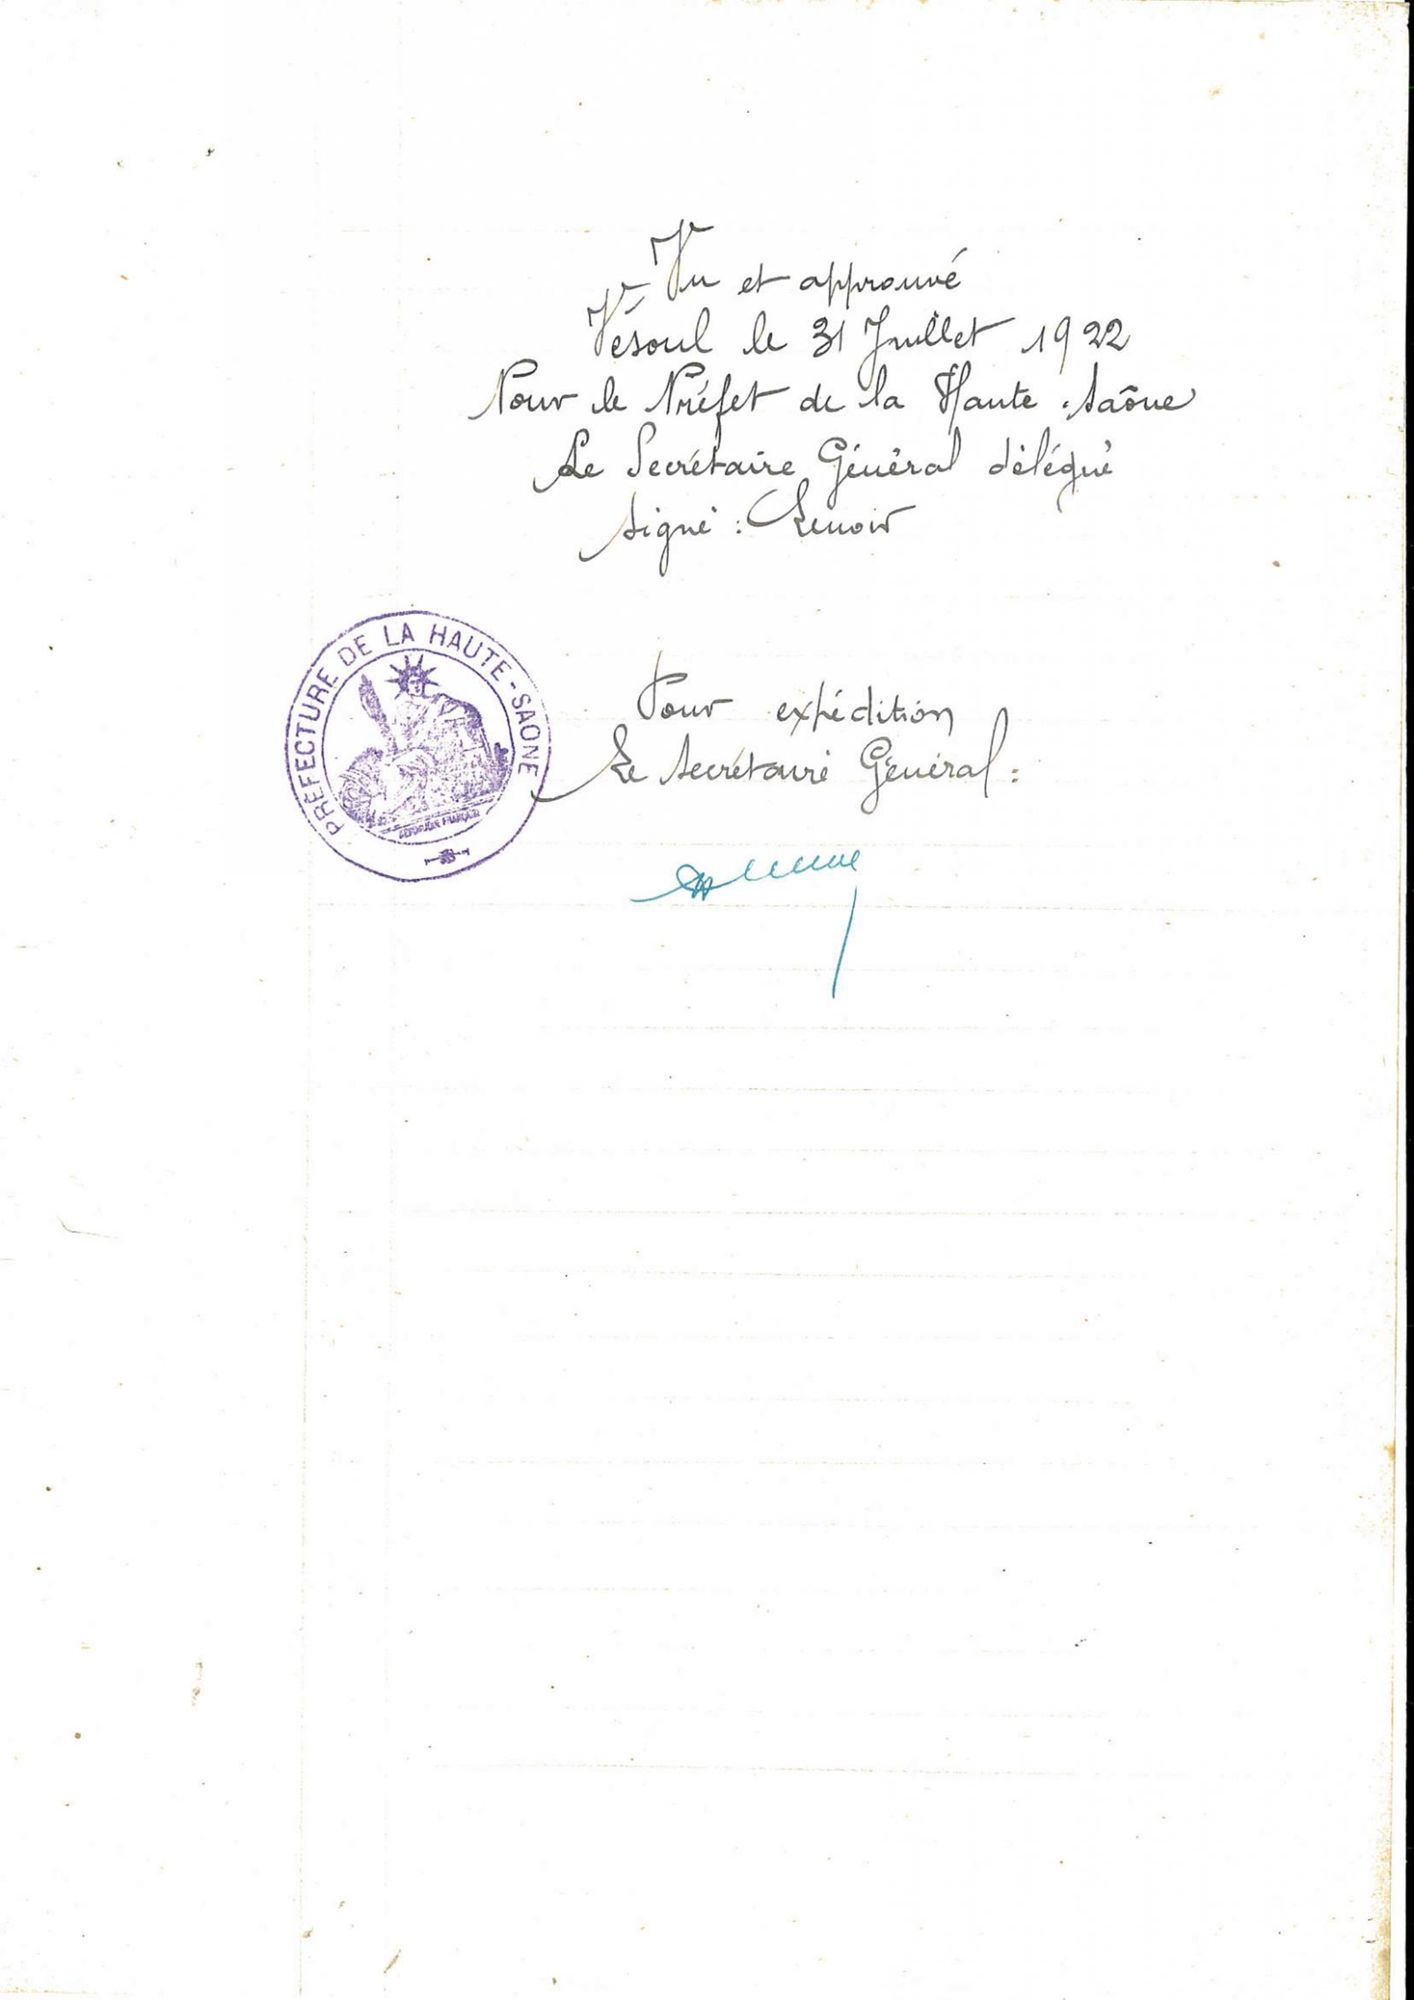 Vu et approuvé
Vésoul le 31 Juillet 1922
Pour le Préfet de la Haute-Saône
Le Secrétaire Général délégué
signé : Lenoir
PRÉFECTURE DE LA HAUTE-SAONE
RÉPUBLIQUE FRANÇAISE
Pour expédition
Le Secrétaire Général :